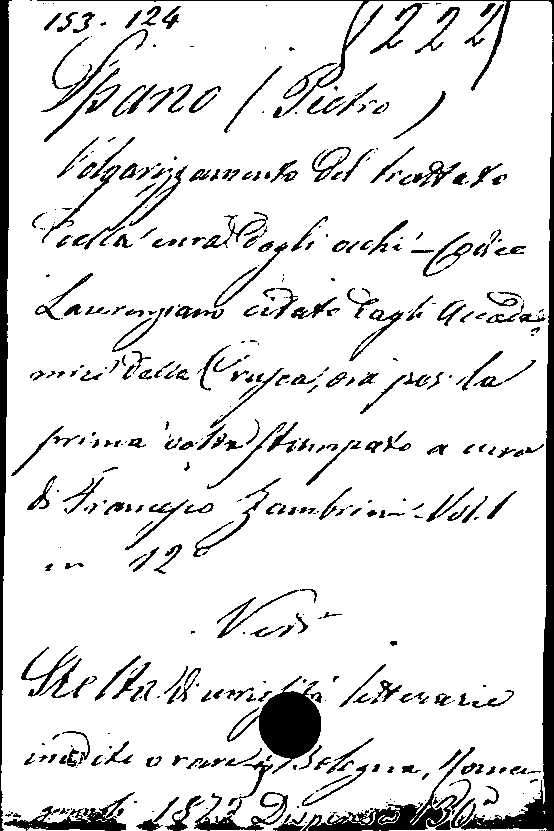 153. 124
(222)
Spano (Pietro)
Volgarizzamento del trattato
della cura degli occhi - Codice
Laurenziano citato dagli Accade=
mici della Crusca, ora per la
prima volta stampato a cura
di Francesco Zambrini - Vol. 1
in 12°
Vedi
Scelta di curiosità letterarie
inedite o rare, Bologna, Roma-
gnoli 1873 Dispensa 130ª